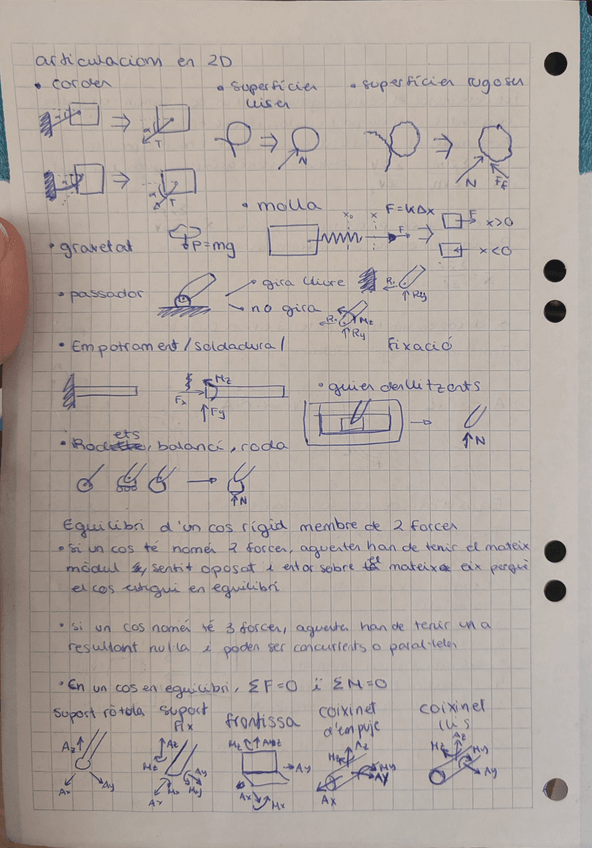 articulacions en 2D
• cordes
• superfícies llises
• superfícies rugoses
T
N
N
Ff
T
• molla
F=kΔx
x₀
x
F
F
x>0
x<0
• gravetat
P=mg
• passador
gira lliure
Rx
Ry
no gira
Rx
Mz
Ry
• Empotrament/soldadura/
fixació
Mz
Fx
Fy
• guies lliscants
N
• Rodets, balancí, roda
N
Equilibri d'un cos rígid membre de 2 forces
• Si un cos té només 2 forces, aquestes han de tenir el mateix
mòdul, sentit oposat i estar sobre el mateix eix perquè
el cos estigui en equilibri
• si un cos només té 3 forces, aquestes han de tenir una
resultant nulla i poden ser concurrents o paral·leles
• En un cos en equilibri, ΣF=0 i ΣM=0
suport ròtula
suport fix
frontissa
coixinet d'empuje
coixinet llis
Az
Ax
Ay
Az
Mz
Ax
Mx
Ay
My
Mz
Az
Ay
Ax
Mx
Mz
Az
My
Ay
Ax
Mz
Az
My
Ay